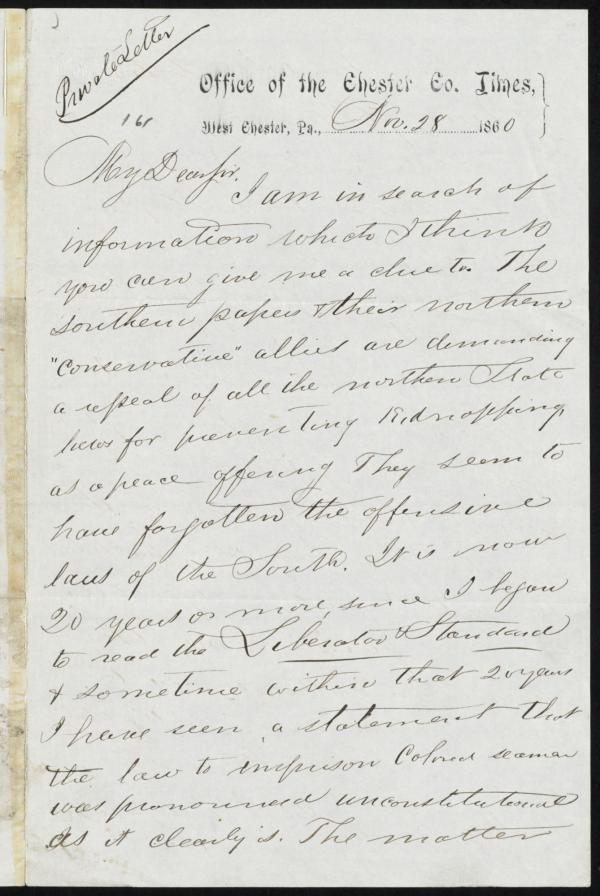 Private Letter
Office of the Chester Co. Times,
161
West Chester, Pa., Nov. 28 1860
My Dear Sir.
I am in search of
information which I think
you can give me a clue to. The
Southern papers & their northern
"conservative" allies are demanding
a repeal of all the northern State
laws for preventing Kidnapping,
as a peace offering They seem to
have forgotten the offensive
laws of the South. It is now
20 years or more, since I began
to read the Liberator & Standard
& sometime within that 20 years
I have seen a statement that
the law to imprison Colored seamen
was pronounced unconstitutional
as it clearly is. The matter